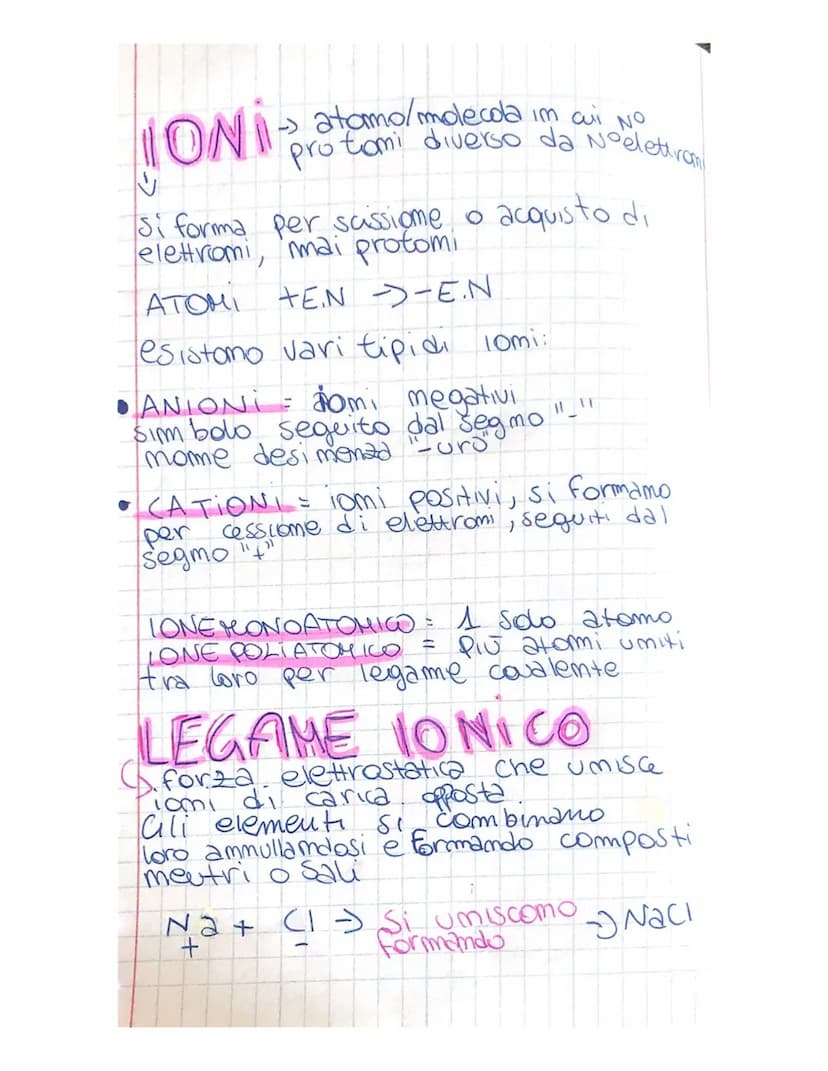 IONI → atomo/molecola in cui N°
protoni diverso da N°elettroni
↓
Si forma per scissione o acquisto di
elettroni, mai protoni
ATOMI +E.N → -E.N
esistono vari tipi di ioni:
• ANIONI = ioni negativi
simbolo seguito dal segno "-"
nome desinenza "-uro"
• CATIONI = ioni positivi, si formano
per cessione di elettroni, seguiti dal
segno "+"
IONE MONOATOMICO = 1 solo atomo
IONE POLIATOMICO = più atomi uniti
tra loro per legame covalente
LEGAME IONICO
↳ forza elettrostatica che unisce
ioni di carica opposta.
Gli elementi si combinano
loro annullandosi e formando composti
neutri o sali
Na + Cl → Si uniscono → NaCl
+ - formando